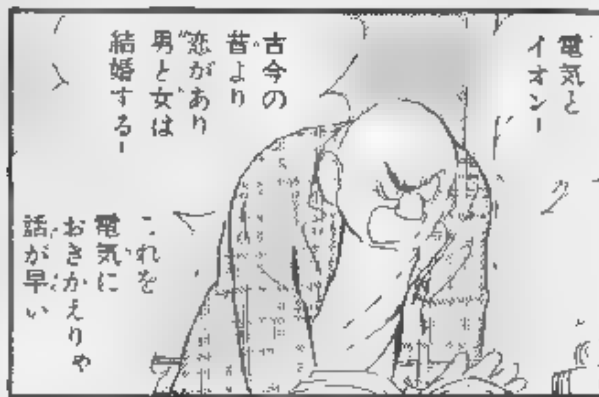 電気と
イオンー
古今の
昔より
恋があり
男と女は
結婚するー
これを
電気に
おきかえりゃ
話が早い